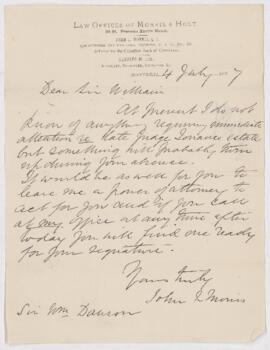 LAW OFFICES OF MORRIS & HOLT.
MONTREAL, 4 July
Dear Sir William
At present I do not
know of anything requiring immediate
attention re Late Judge Torrance estate
but something will probably turn
up during your absence.
It would be as well for you to
leave me a power of attorney to
act for you and if you call
at my office at any time after
today you will find one ready
for your signature.
Yours truly
John L Morris
Sir Wm Dawson